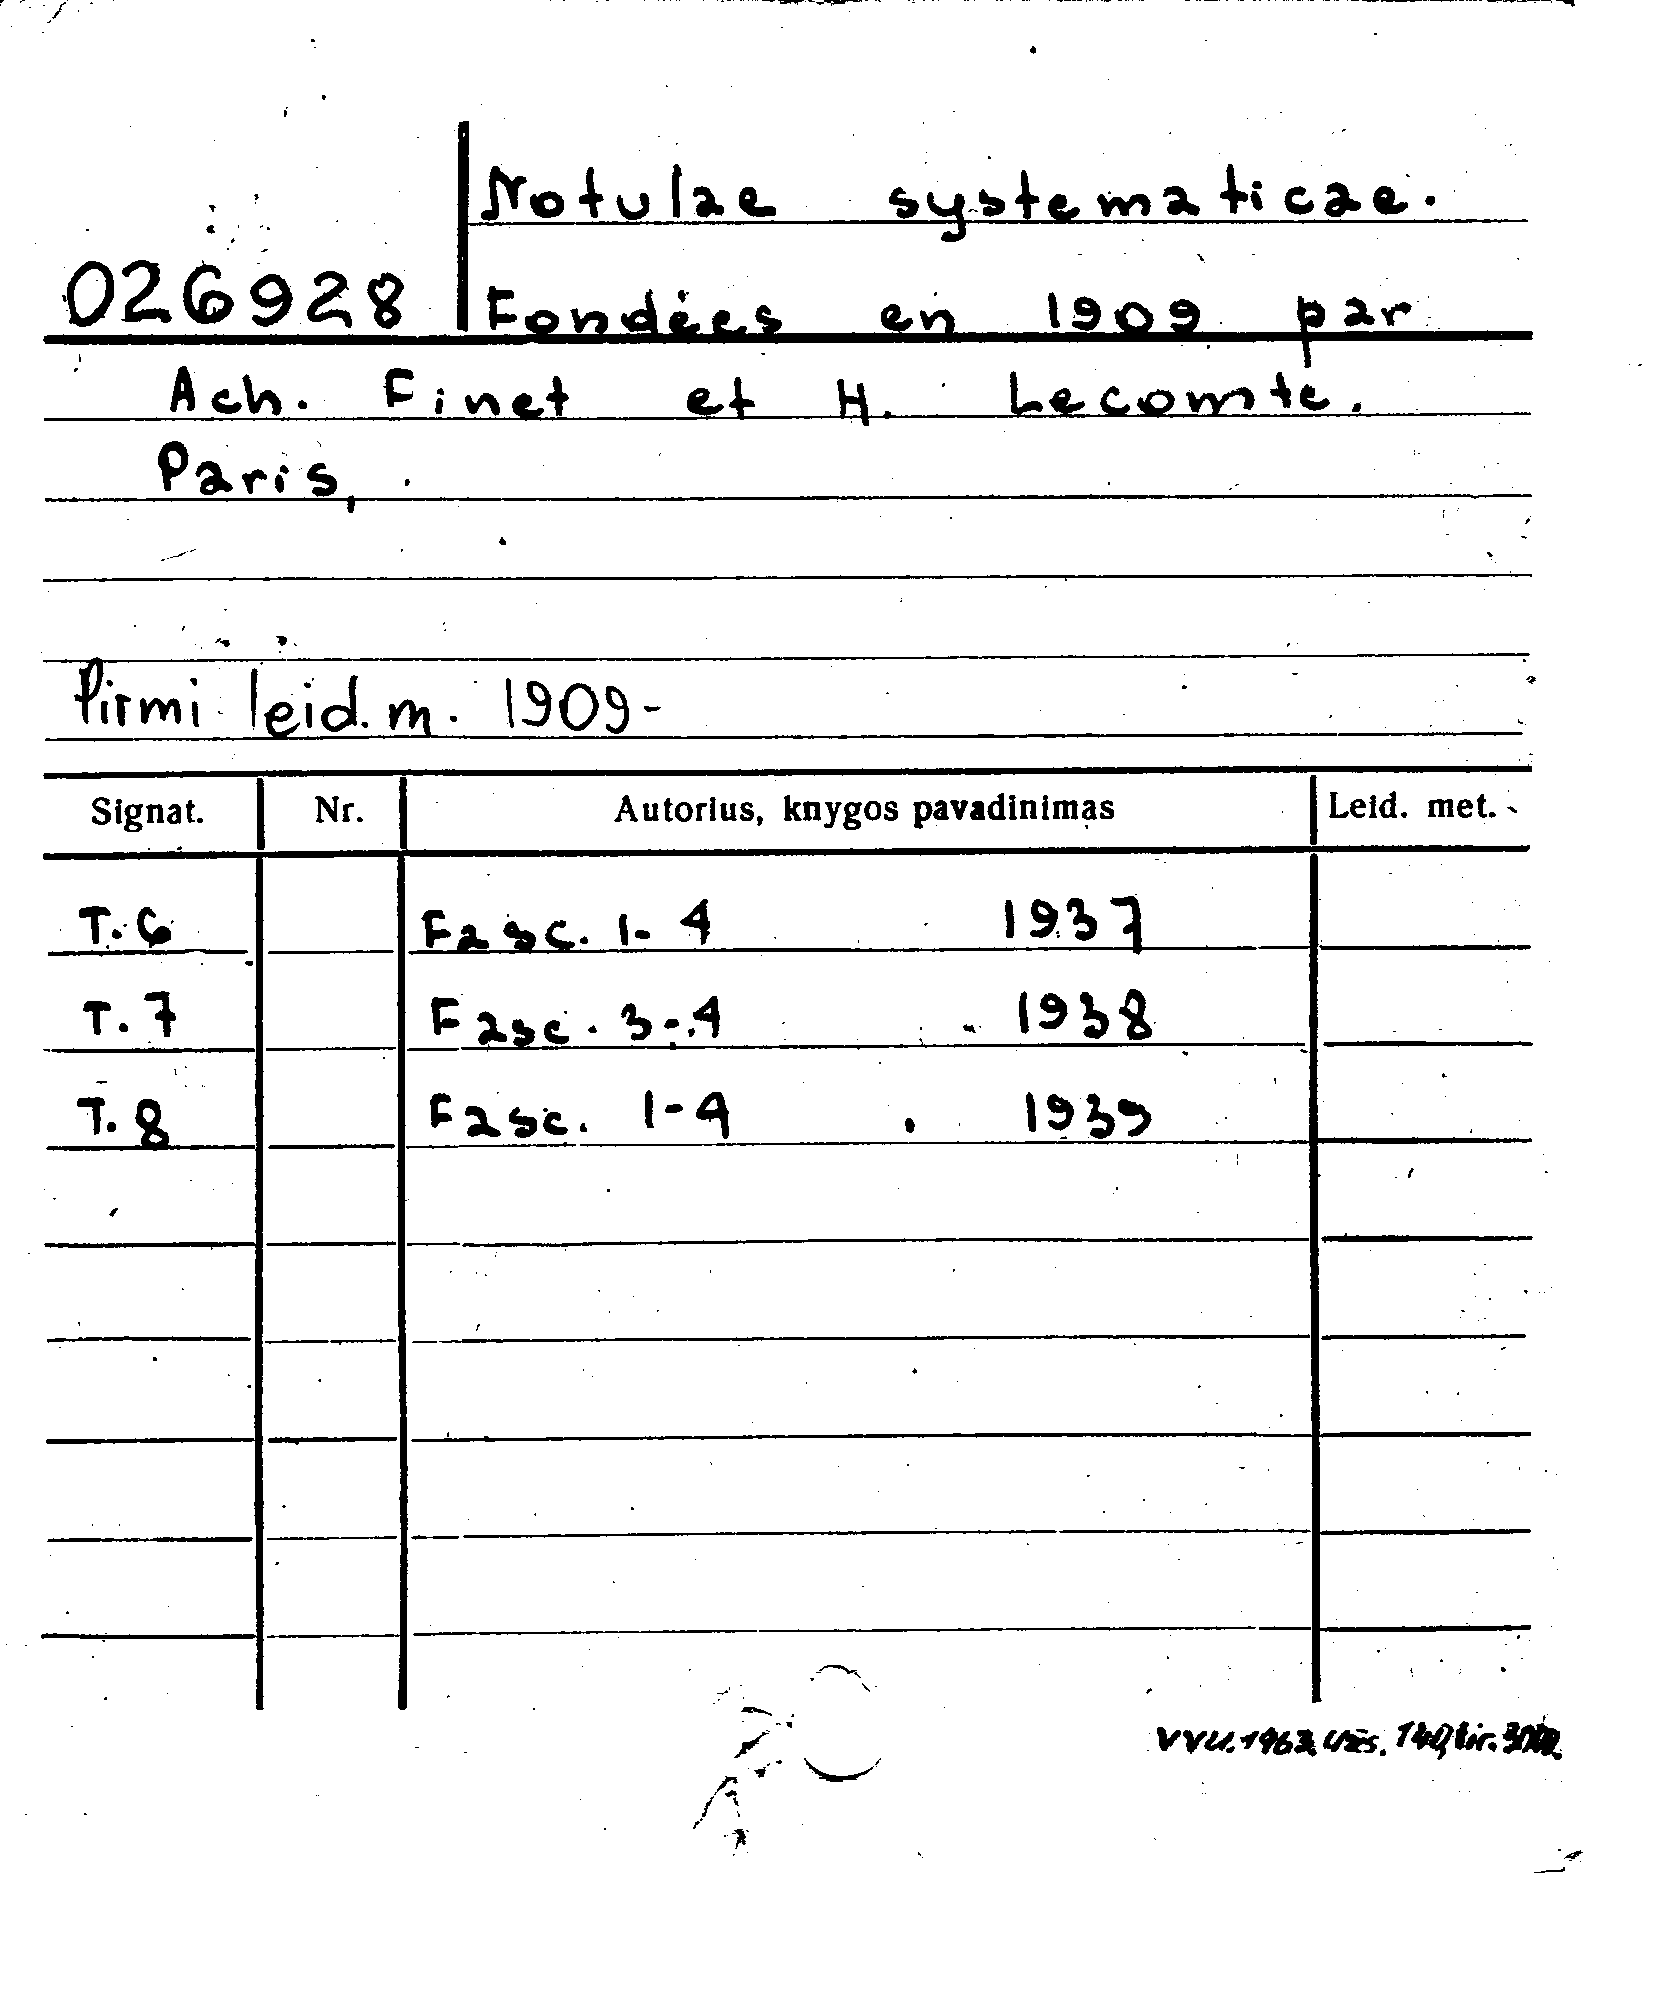 Notulae systematicae.
026928 Fondées en 1909 par
Ach. Finet et H. Lecomte.
Paris,
Pirmi leid. m. 1909-
Signat. Nr. Autorius, knygos pavadinimas Leid. met.
T. 6 Fasc. 1-4 1937
T. 7 Fasc. 3-4 1938
T. 8 Fasc. 1-4 1939
VVU. 1963. Užs. tir.